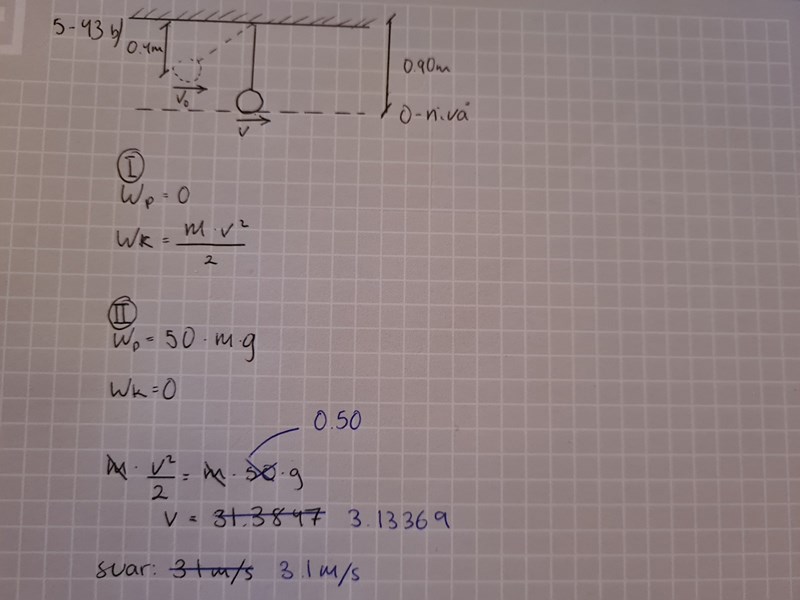 5-43 b/
0.4m
0.90m
V₀
V
0-nivå
I
Wp = 0
Wk = m · v² / 2
II
Wp = 50 · m · g
Wk = 0
0.50
m · v²/2 = m · 50 · g
v = 31.3847 3.13369
svar: 31 m/s 3.1 m/s